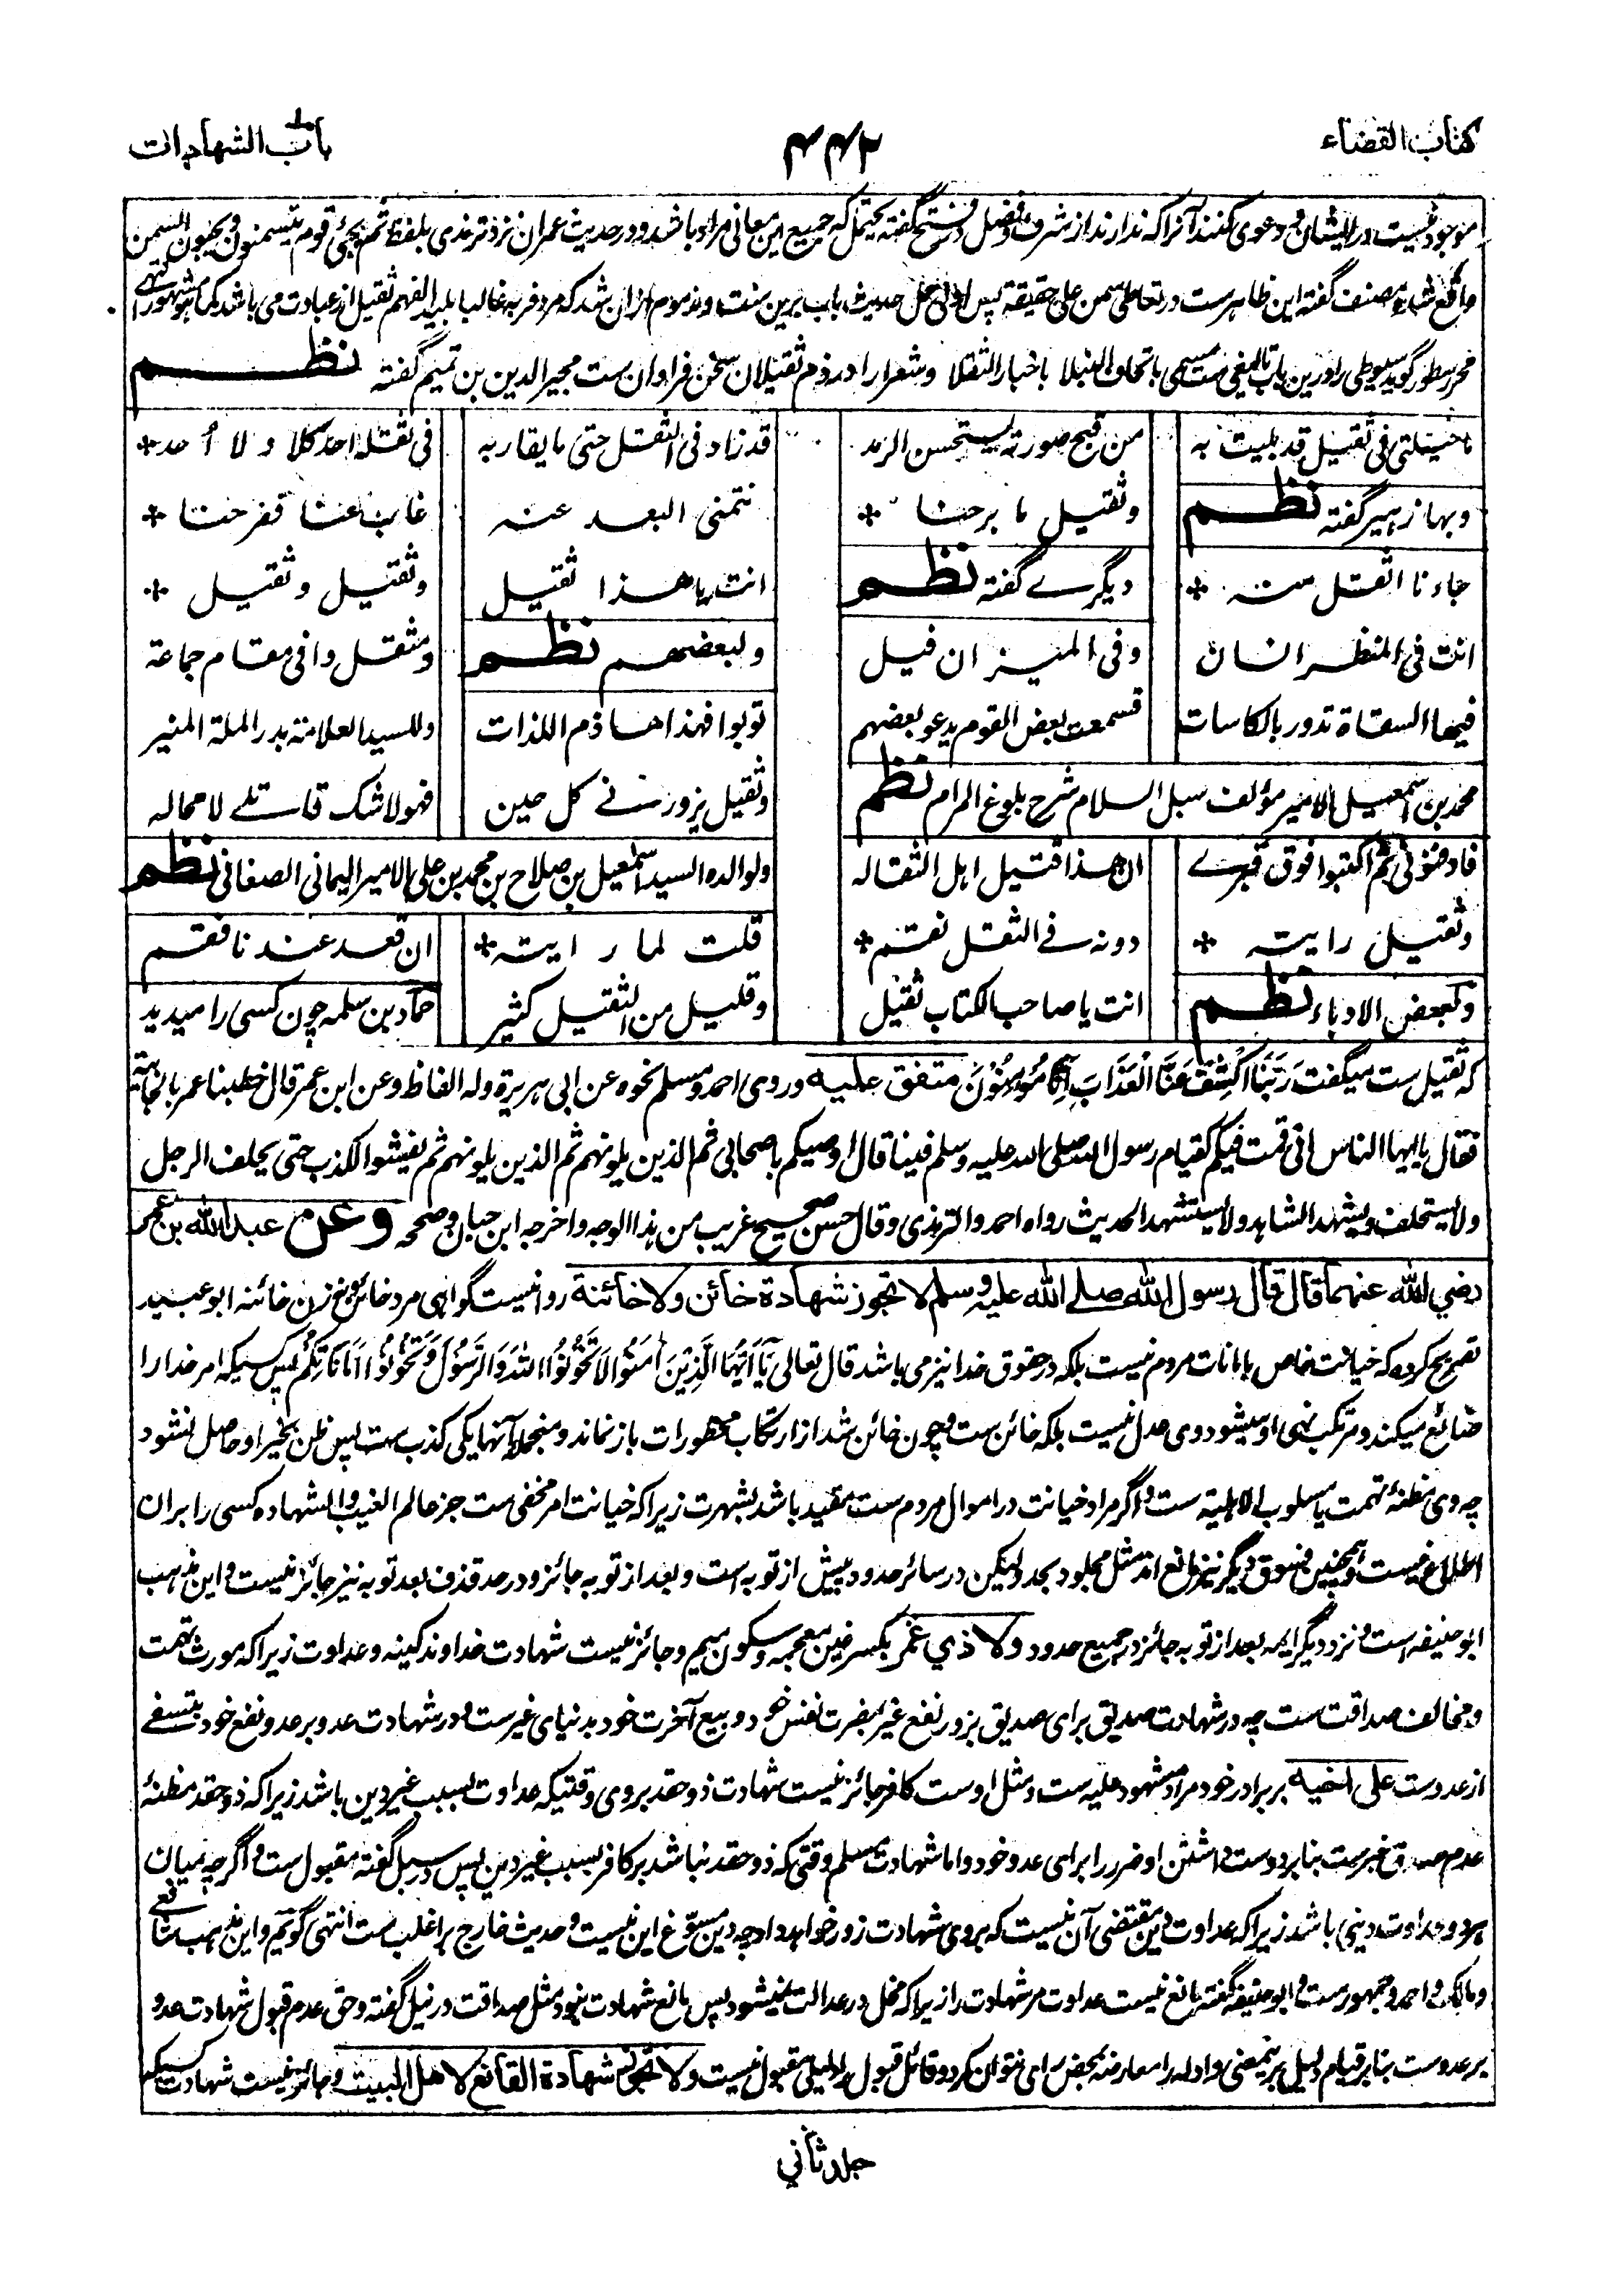 كتاب القضاء
باب الشهادات
موجود نیست در ایشان و دعوی کنند آنرا که ندارند از شرف و فضل و در فتح گفته یحتمل که جمیع این معانی مراد باشد و در حدیث عمران نزد ترمذی بلفظ ثم یجئ قوم یتسمنون و یحبون السمن
واقع شده مصنف گفته این ظاهرست در تعاطی سمن علی حقیقة پس اولی حمل حدیث باب برین ست و مذموم ازان شد که مرد فربه غالبا بلید الفهم ثقیل از عبادت می باشد کما هو مشهور انتهی
محرر سطور گوید سیوطی را درین باب تالیفی ست مسمی باتحاف النبلا باخبار الثقلا و شعرا را در ذم ثقیلان سخن فراوان ست مجیر الدین بن تمیم گفته نظم
ما حیلتی فی ثقیل قد بلیت به
من قبح صورته یستحسن الرمد
قد زاد فی الثقل حتی ما یقاربه
فی ثقله احد کلا و لا أحد *
و بها زهیر گفته نظم
و ثقیل ما برحنا *
نتمنی البعد عنه
غاب عنا ففرحنا *
جاءنا اثقل منه *
دیگرے گفته نظم
انت یا هذا ثقیل
و ثقیل و ثقیل *
انت فی المنظر انسان
و فی المیزان فیل
و لبعضهم نظم
و مثقل وافی مقام جماعة
فیها السقاة تدور بالکاسات
فسمعت بعض القوم یدعو بعضهم
توبوا فهذا هاذم اللذات
و للسید العلامة بدر الملة المنیر
محمد بن اسمعیل الامیر مؤلف سبل السلام شرح بلوغ المرام نظم
و ثقیل یزورنے کل حین
فهو لا شک قاتلے لا محاله
فادفنونی ثم اکتبوا فوق قبرے
ان هذا قتیل اهل الثقاله
و لوالده السید اسمعیل بن صلاح بن محمد بن علی الامیر الیمانی الصنعانی نظم
و ثقیل رایته *
دونه فے الثقل نقم *
قلت لما رایته *
ان قعد عندنا فقم
و لبعض الادباء نظم
انت یا صاحب الکتاب ثقیل
و قلیل من الثقیل کثیر
حماد بن سلمه چون کسی را میدید
که ثقیل ست میگفت رَبَّنَا اكْشِفْ عَنَّا الْعَذَابَ إِنَّا مُؤْمِنُوْنَ متفق علیه و روی احمد و مسلم نحوه عن ابی هریرة و له الفاظ و عن ابن عمر قال خطبنا عمر بالجابیة
فقال یا ایها الناس انی قمت فیکم کقیام رسول الله صلی الله علیه و سلم فینا قال اوصیکم باصحابی ثم الذین یلونهم ثم الذین یلونهم ثم یفشوا الکذب حتی یحلف الرجل
و لا یستحلف و یشهد الشاهد و لا یستشهد الحدیث رواه احمد و الترمذی و قال حسن صحیح غریب من هذا الوجه و اخرجه ابن حبان و صححه وعن عبد الله بن عمر
رضي الله عنهما قال قال رسول الله صلے الله علیه وسلم لا تجوز شهادة خائن ولا خائنة روا نیست گواهی مرد خائن و نه زن خائنه ابو عبید
تصریح کرده که خیانت خاص بامانات مردم نیست بلکه در حقوق خدا نیز می باشد قال تعالی يَآ أَيُّهَا الَّذِيْنَ اٰمَنُوْا لَا تَخُوْنُوا اللهَ وَالرَّسُوْلَ وَتَخُوْنُوْا اَمَانَاتِكُمْ پس کسیکه امر خدا را
ضائع میکند و مرتکب نهی او میشود وی عدل نیست بلکه خائن ست و چون خائن شد از ارتکاب محظورات باز نماند و منجمله آنها یکی کذب ست پس ظن بخیر او حاصل نشود
چه وی مظنهٔ تهمت یا مسلوب الاهلیة ست و اگر مراد خیانت در اموال مردم ست مقید باشد بشهرت زیرا که خیانت امر مخفی ست جز عالم الغیب و الشهاده کسی را بران
اطلاع نیست و همچنین فسوق دیگر نیز مانع اند مثل مجلود بحد و لیکن در سائر حدود پیش از توبه است و بعد از توبه جائز و در حد قذف بعد توبه نیز جائز نیست و این مذهب
ابو حنیفه است و نزد دیگر ایمه بعد از توبه جائز در جمیع حدود ولا ذي غمر بکسر غین معجمه و سکون میم و جائز نیست شهادت خداوند کینه و عداوت زیرا که مورث تهمت
و مخالف صداقت ست چه در شهادت صدیق برای صدیق بزور نفع غیر بمضرت نفس خود و بیع آخرت خود بدنیای غیرست و در شهادت عدو بر عدو نفع خود بتشفے
از عدوست علی اخیه بر برادر خود مراد مشهود علیه ست و مثل اوست کافر جائز نیست شهادت ذو حقد بروی وقتیکه عداوت بسبب غیر دین باشد زیرا که ذو حقد مظنهٔ
عدم صدق خبرست بنا بر دوست داشتن او ضرر را برای عدو خود و اما شهادت مسلم وقتی که ذو حقد نباشد بر کافر بسبب غیر دین پس در سبل گفته مقبول ست و اگرچه میان
هر دو عداوت دینی باشد زیرا که عداوت دین مقتضی آن نیست که بروی شهادت زور خواهد داد چه دین مسوغ این نیست و حدیث خارج بر اغلب ست انتهی گویم و این مذهب شافعے
و مالک و احمد و جمهورست و ابو حنیفه گفته مانع نیست عداوت مر شهادت را زیرا که مخل در عدالت نمیشود پس مانع شهادت نبود مثل صداقت در نیل گفته و حق عدم قبول شهادت عدو
بر عدوست بنا بر قیام دلیل برینمعنی و ادله را معارضه بمحض رای نتوان کرد و قائل قبول را دلیلی مقبول نیست ولا تجوز شهادة القانع لاهل البیت و جائز نیست شهادت کسیکه
جلد ثاني